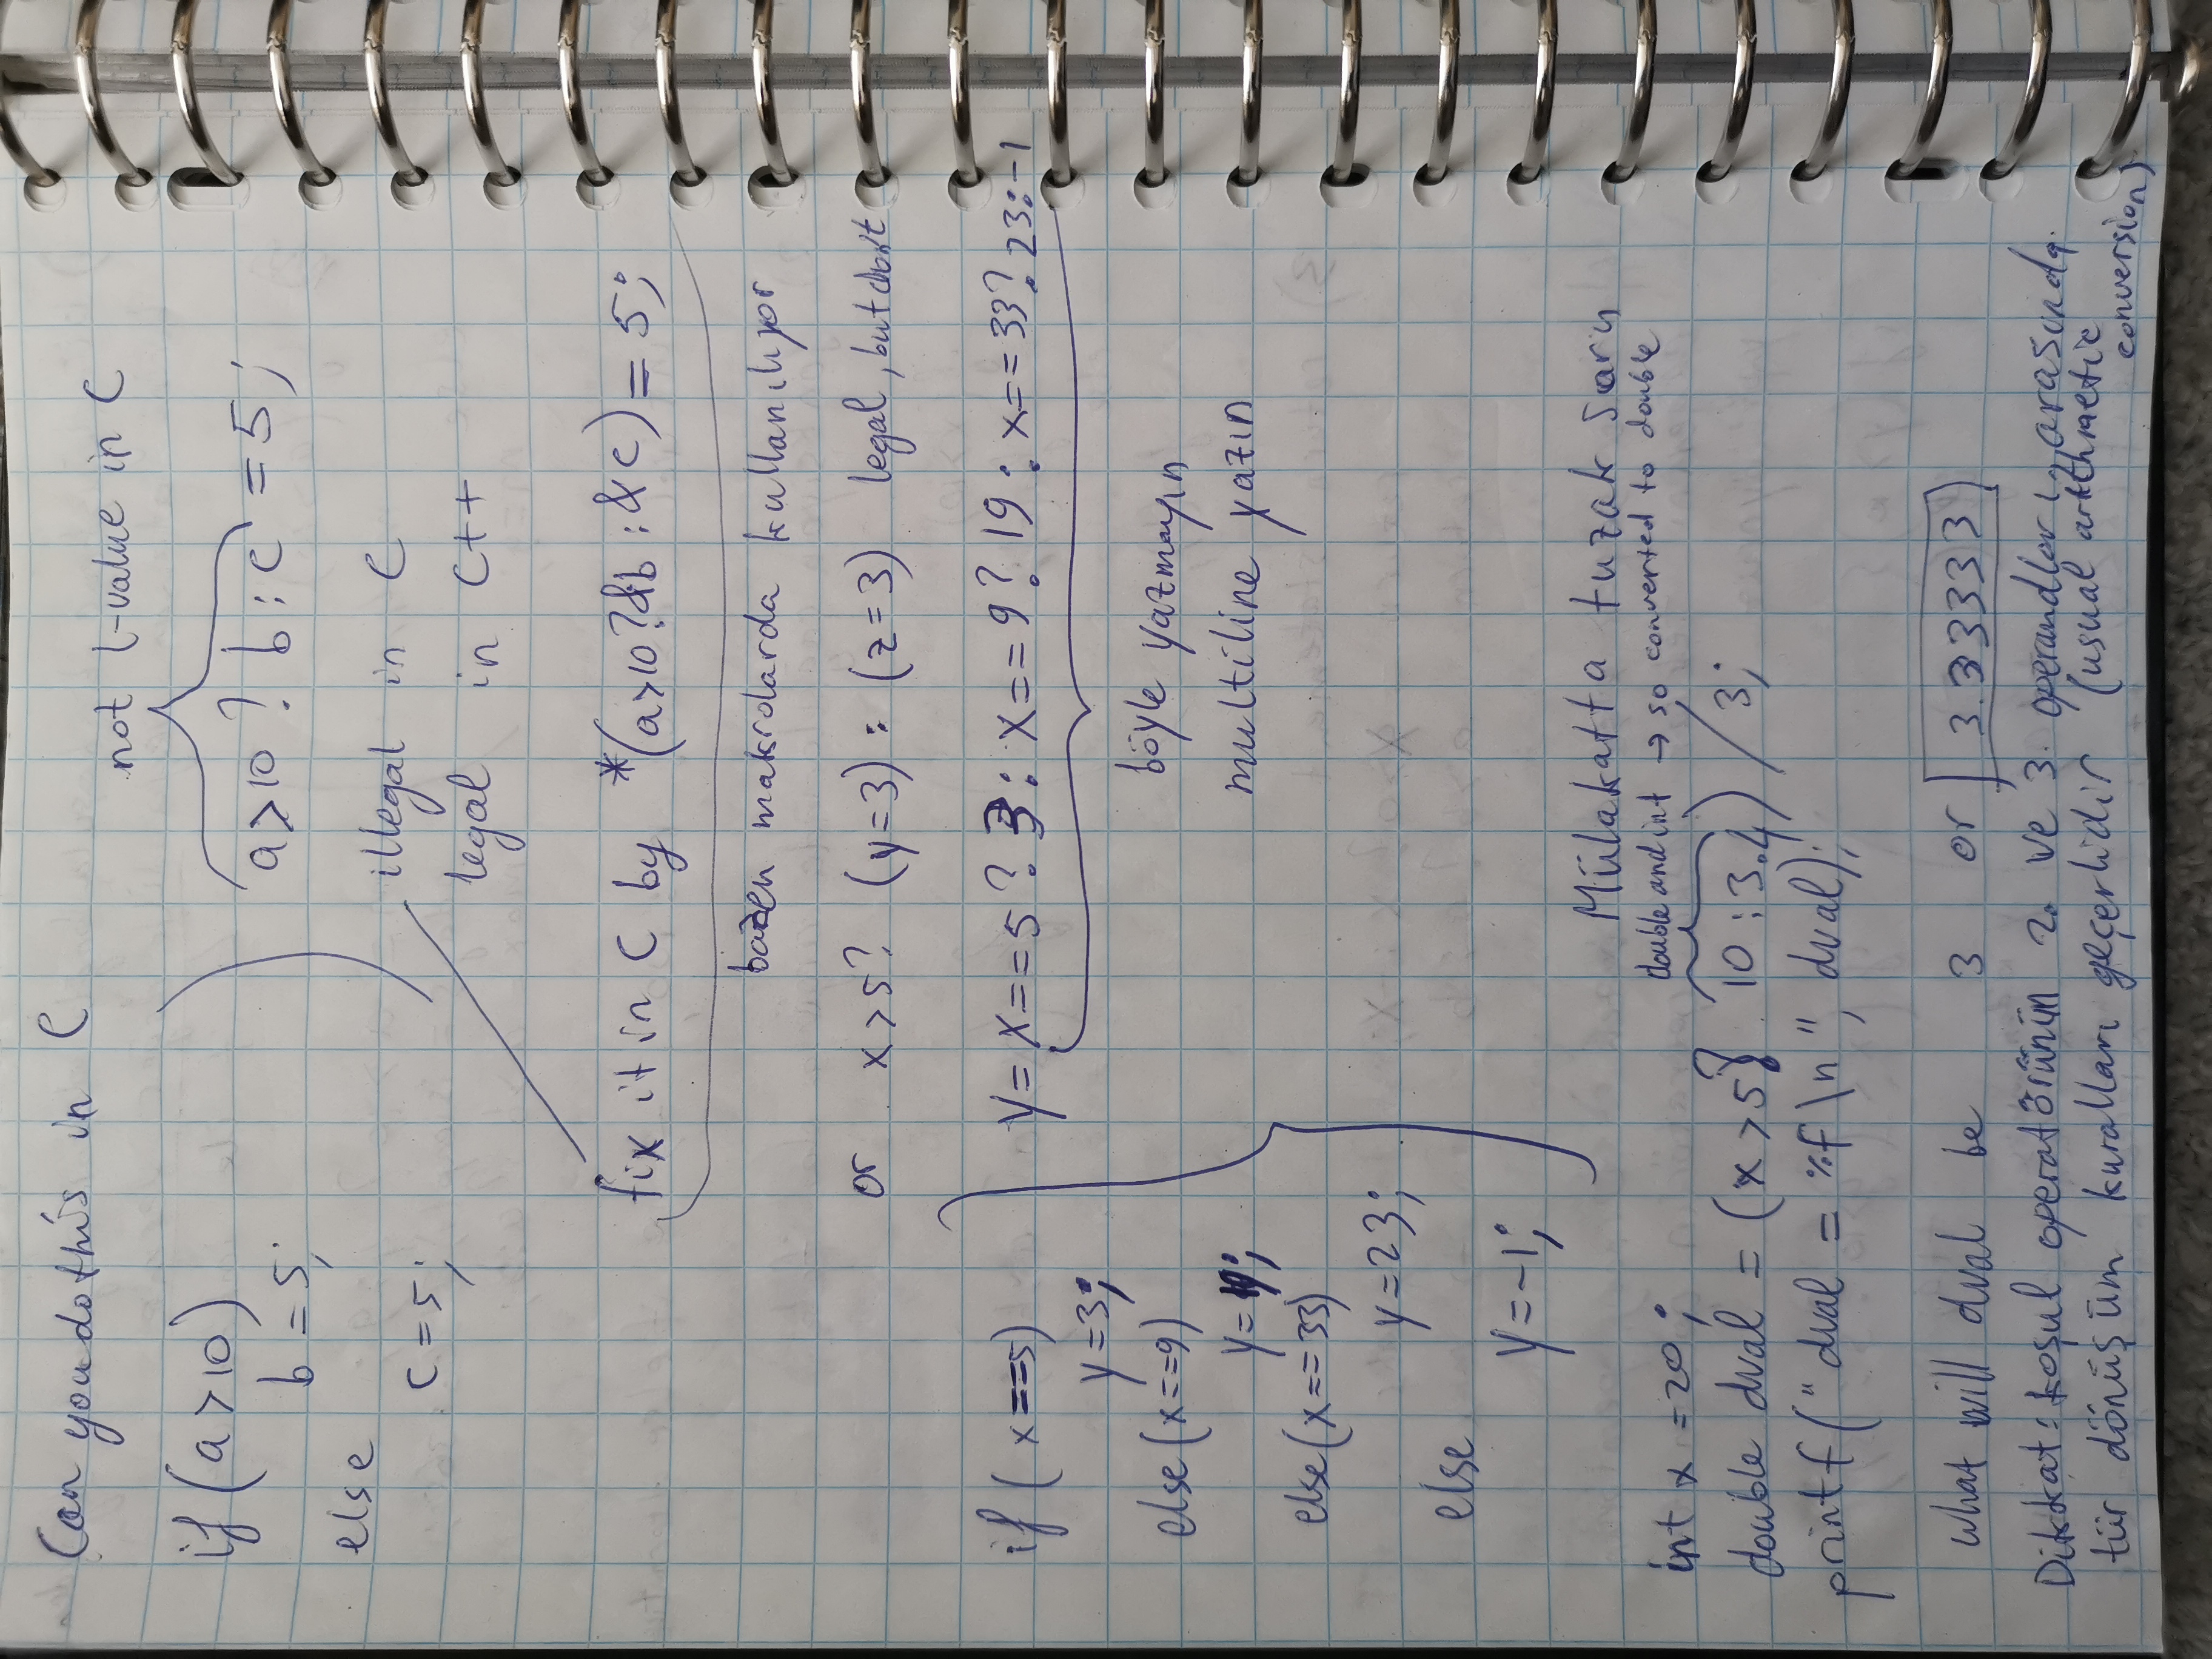 Can you do this in C
not l-value in C
if (a>10)
b = 5;
else
c = 5;
a>10 ? b : c = 5;
illegal in C
legal in C++
fix it in C by *(a>10?&b : &c) = 5;
bazen makrolarda kullanılıyor
or x>5? (y=3) : (z=3) legal, but don't
if ( x==5)
y=3;
else(x==9)
y=19;
else(x==33)
y=23;
else
y=-1;
y= x==5 ? 3 : x==9? 19 : x==33? 23:-1
böyle yazmayın
multiline yazın
Mülakatta tuzak soru
double and int → so converted to double
int x =20;
double dval = (x>5? 10 : 3.4) / 3;
printf("dval = %f \n", dval);
what will dval be 3 or 3.33333
Dikkat: koşul operatörünün 2. ve 3. operandları arasında
tür dönüşüm kuralları geçerlidir (usual arithmetic
conversion)